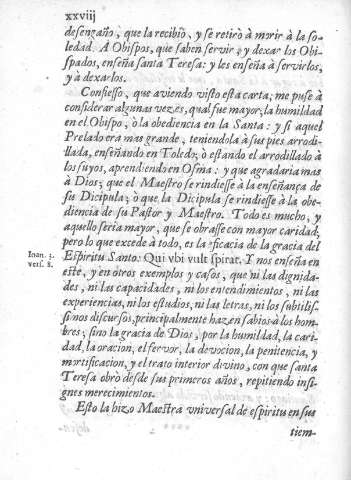 xxviij
desengaño, que la recibiò, y se retirò à morir à la so-
ledad. A Obispos, que saben servir, y dexar los Obi-
spados, enseña santa Teresa: y les enseña à servirlos,
y à dexarlos.
Confiesso, que aviendo visto està carta, me puse à
considerar algunas vezes, qual fue mayor, la humildad
en el Obispo, ò la obediencia en la Santa: y si aquel
Prelado era mas grande, teniendola à sus pies arrodi-
llada, enseñando en Toledo; ò estando el arrodillado à
los suyos, aprendiendo en Osma: y que agradaria mas
à Dios; que el Maestro se rindiesse à la enseñança de
su Dicipula; ò que la Dicipula se rindiesse à la obe-
diencia de su Pastor y Maestro. Todo es mucho, y
aquello seria mayor, que se obrasse con mayor caridad,
pero lo que excede à todo, es la eficacia de la gracia del
Espiritu Santo: Qui vbi vult spirat. Y nos enseña en
Ioan. 3.
vers. 8.
este, y en otros exemplos y casos, que ni las dignida-
des, ni las capacidades, ni los entendimientos, ni las
experiencias, ni los estudios, ni las letras, ni los subtilis-
simos discursos, principalmente hazen sabios à los hom-
bres; sino la gracia de Dios, por la humildad, la cari-
dad, la oracion, el fervor, la devocion, la penitencia, y
mortificacion, y el trato interior divino, con que santa
Teresa obrò desde sus primeros años, repitiendo insi-
gnes merecimientos.
Esto la hizo Maestra universal de espiritu en sus
tiem-